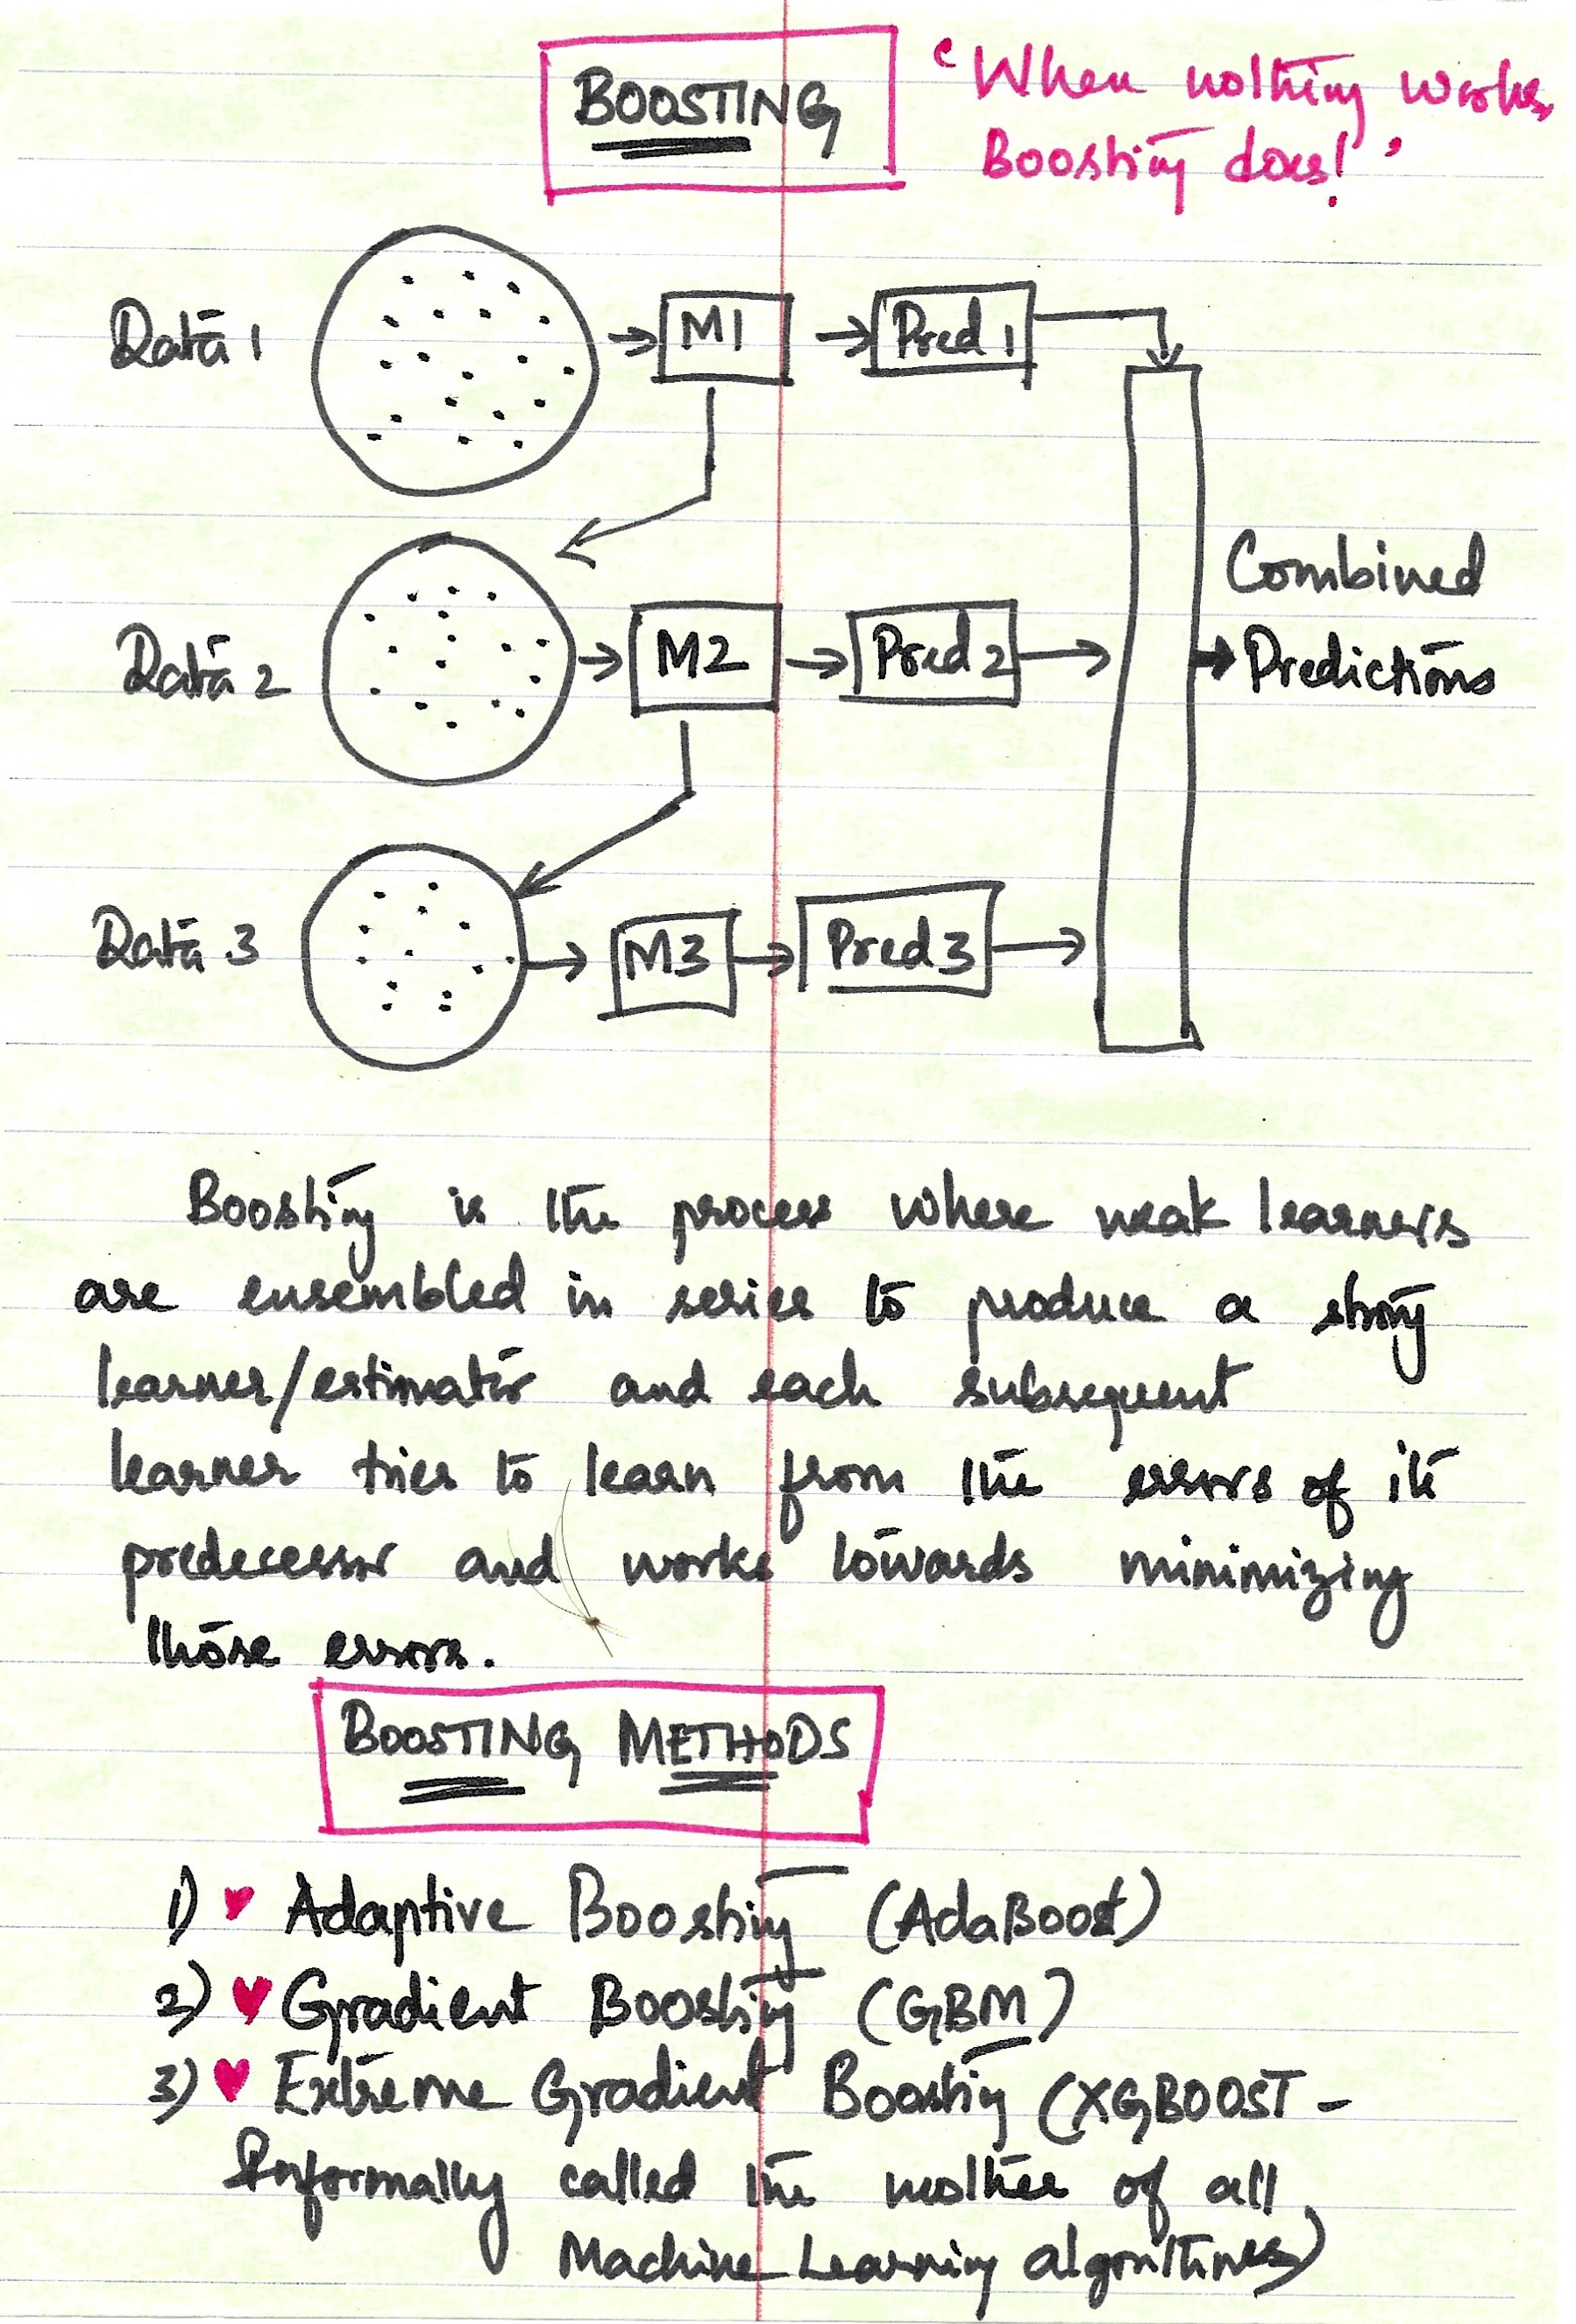 BOOSTING
"When nothing works,
Boosting does!"
Data 1
M1
Pred 1
Data 2
M2
Pred 2
Combined
Predictions
Data 3
M3
Pred 3
Boosting is the process where weak learners
are ensembled in series to produce a strong
learner/estimator and each subsequent
learner tries to learn from the errors of its
predecessor and works towards minimizing
those errors.
BOOSTING METHODS
1) ♥ Adaptive Boosting (AdaBoost)
2) ♥ Gradient Boosting (GBM)
3) ♥ Extreme Gradient Boosting (XGBOOST -
Informally called the mother of all
Machine Learning algorithms)